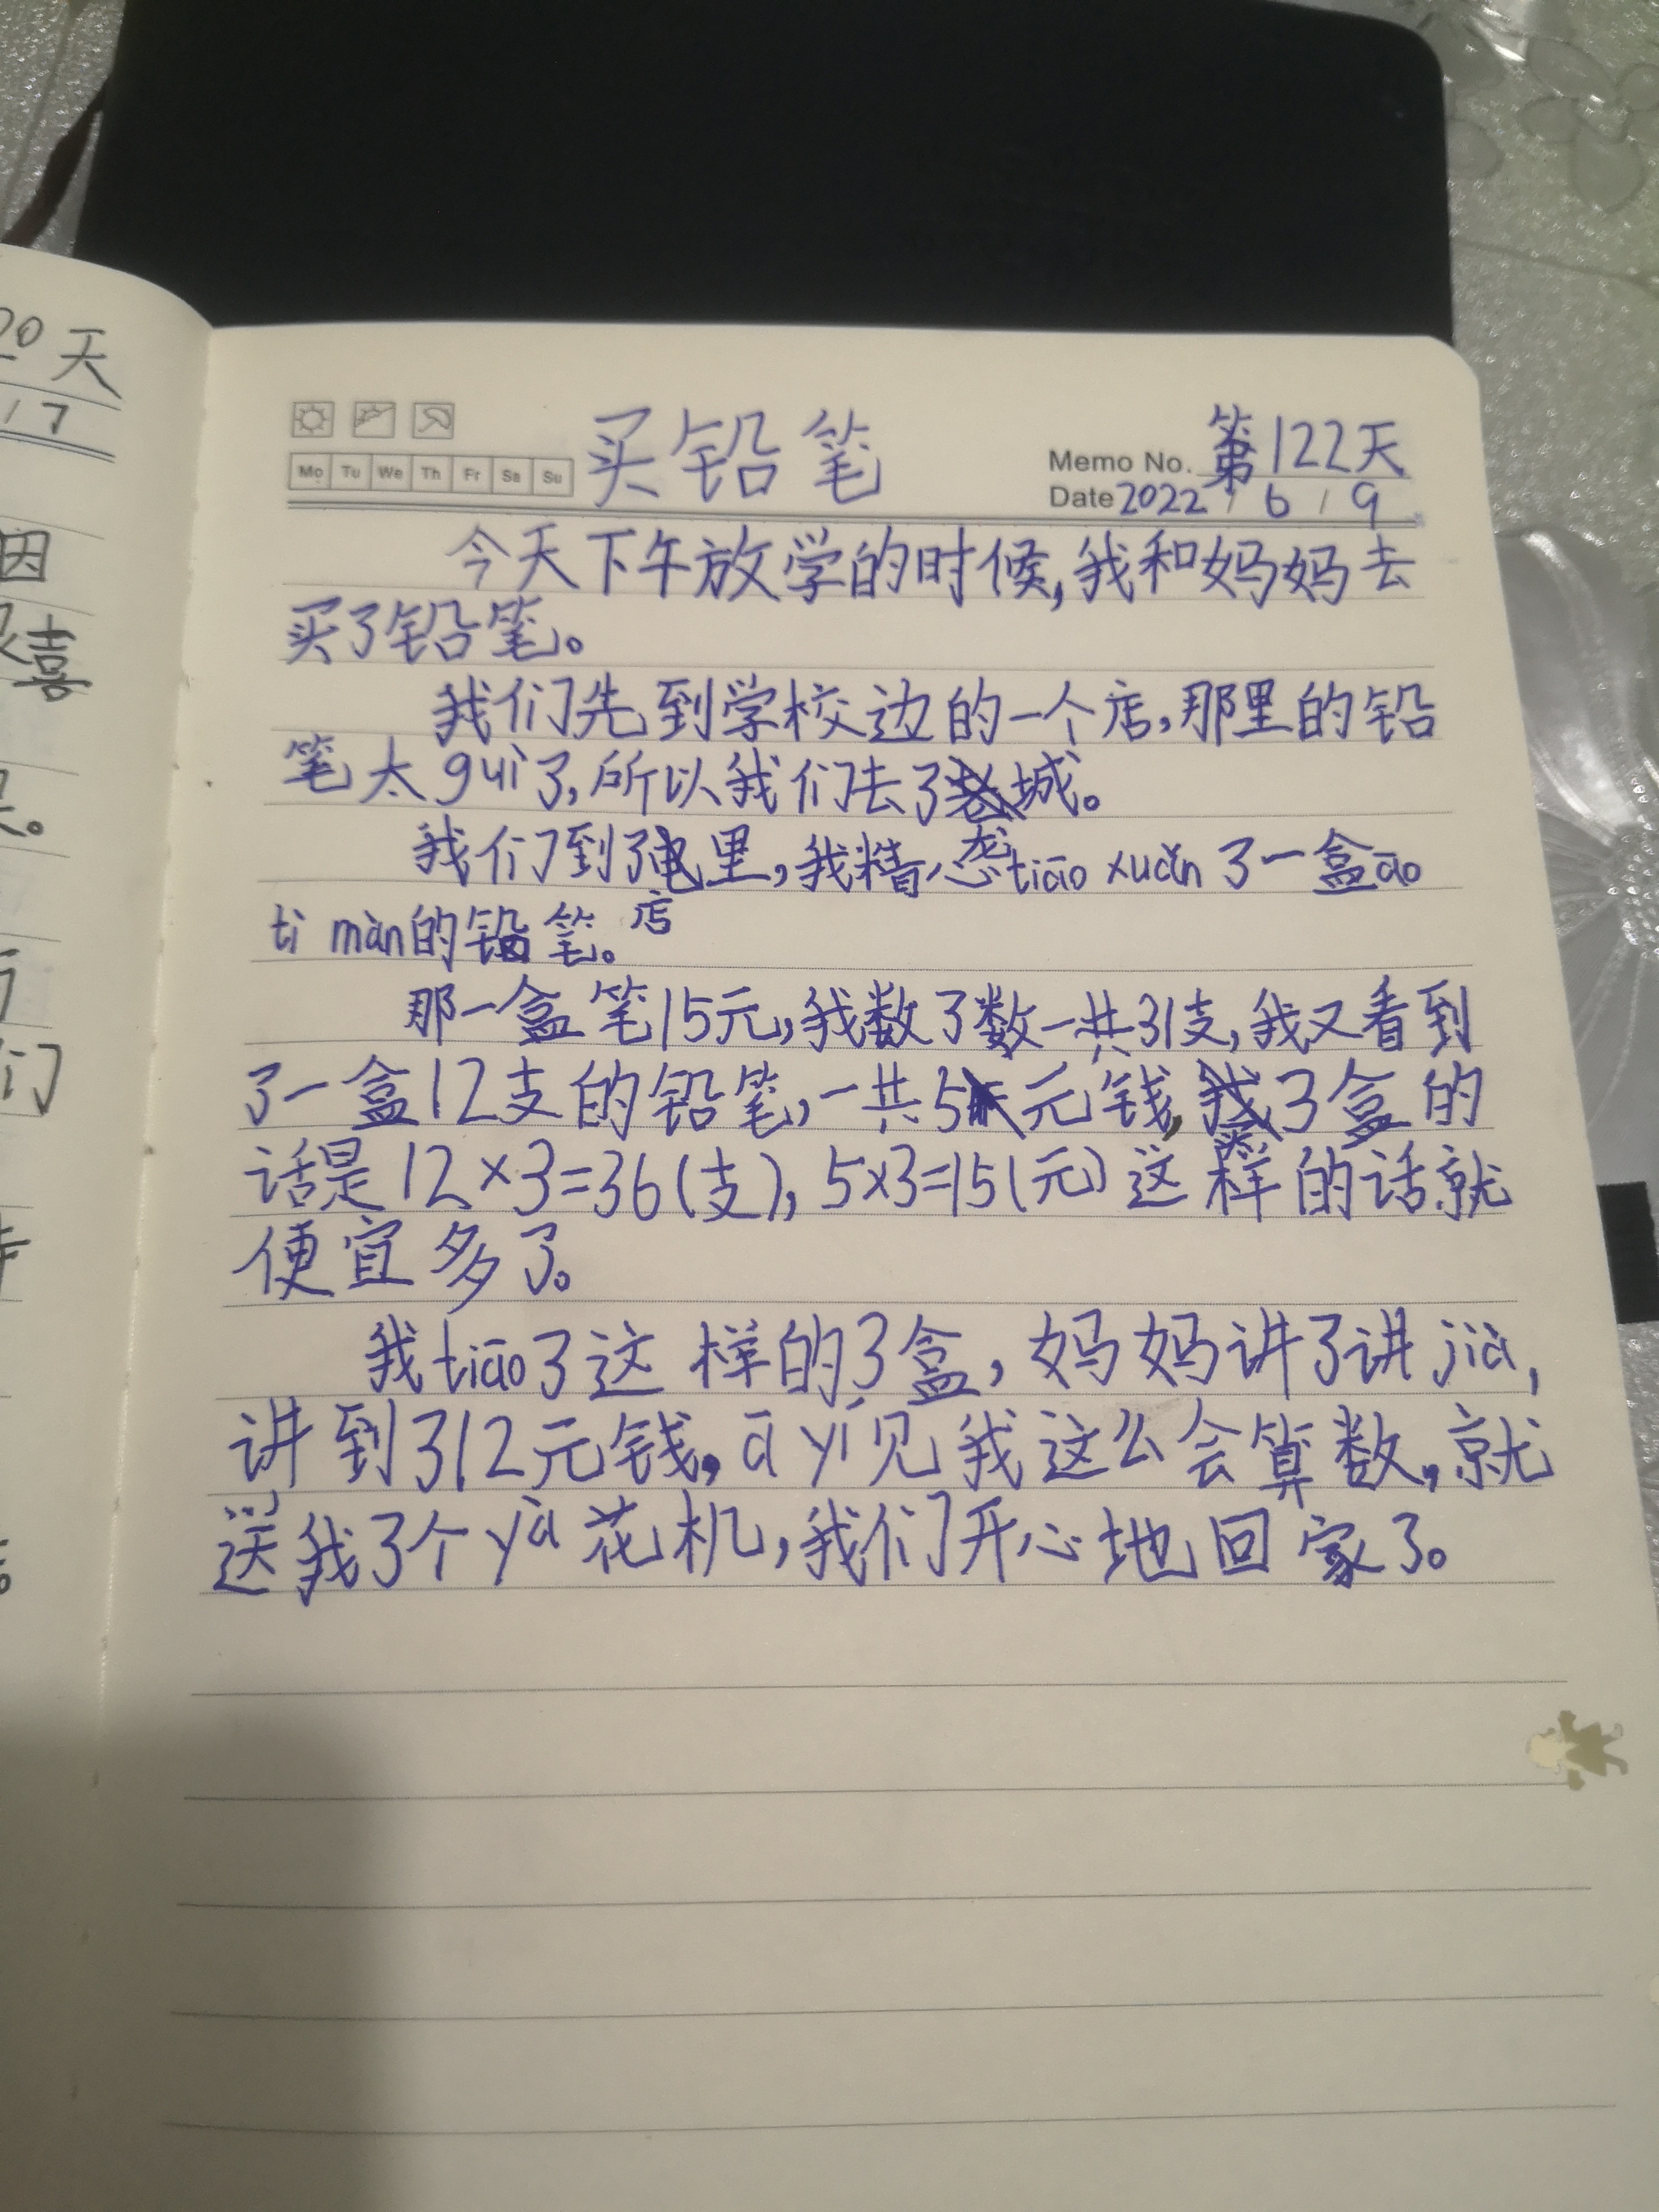 20天
/ 7
因
喜
们
买铅笔
Mo Tu We Th Fr Sa Su
Memo No. 第122天
Date 2022 / 6 / 9
今天下午放学的时候,我和妈妈去
买了铅笔。
我们先到学校边的一个店,那里的铅
笔太guì了,所以我们去了城。
我们到了里,我精心tiāo xuǎn了一盒ào
tì màn的铅笔。店
那一盒笔15元,我数了数一共31支,我又看到
了一盒12支的铅笔,一共5元钱,3盒的
话是12×3=36(支),5×3=15(元)这样的话就
便宜多了。
我tiāo了这样的3盒,妈妈讲了讲jià,
讲到了12元钱,ā yí见我这么会算数,就
送我了个yà花机,我们开心地回家了。